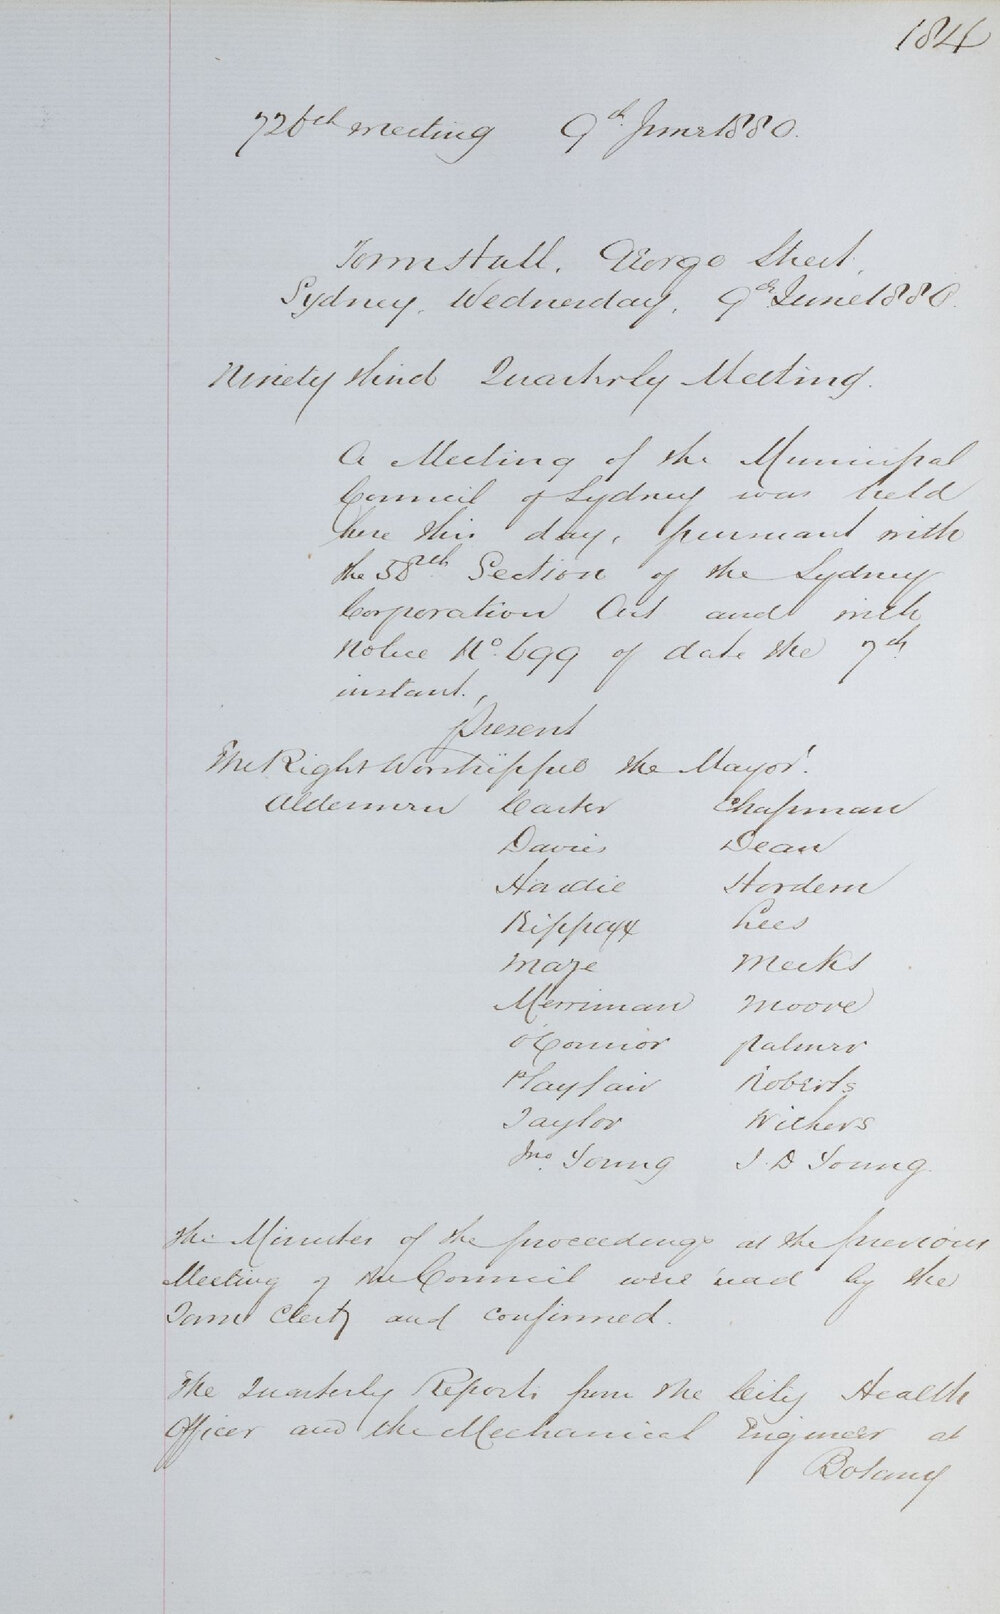 184
726th meeting 9th June 1880.
Town Hall, George Street,
Sydney, Wednesday, 9th June 1880.
Ninety third Quarterly Meeting.
A Meeting of the Municipal
Council of Sydney was held
here this day, pursuant with
the 58th Section of the Sydney
Corporation Act and with
Notice No. 699 of date the 7th
instant.,
Present
The Right Worshipful the Mayor.
Aldermen Carter Chapman
Davies Dean
Hardie Hordern
Kippax Lees
Maze Meeks
Merriman Moore
O'Connor Palmer
Playfair Roberts
Taylor Withers
Jno. Young J. D Young.
The Minutes of the proceedings at the previous
Meeting of the Council were read by the
Town Clerk and confirmed.
The Quarterly Reports from the City Health
Officer and the Mechanical Engineer at
Botany